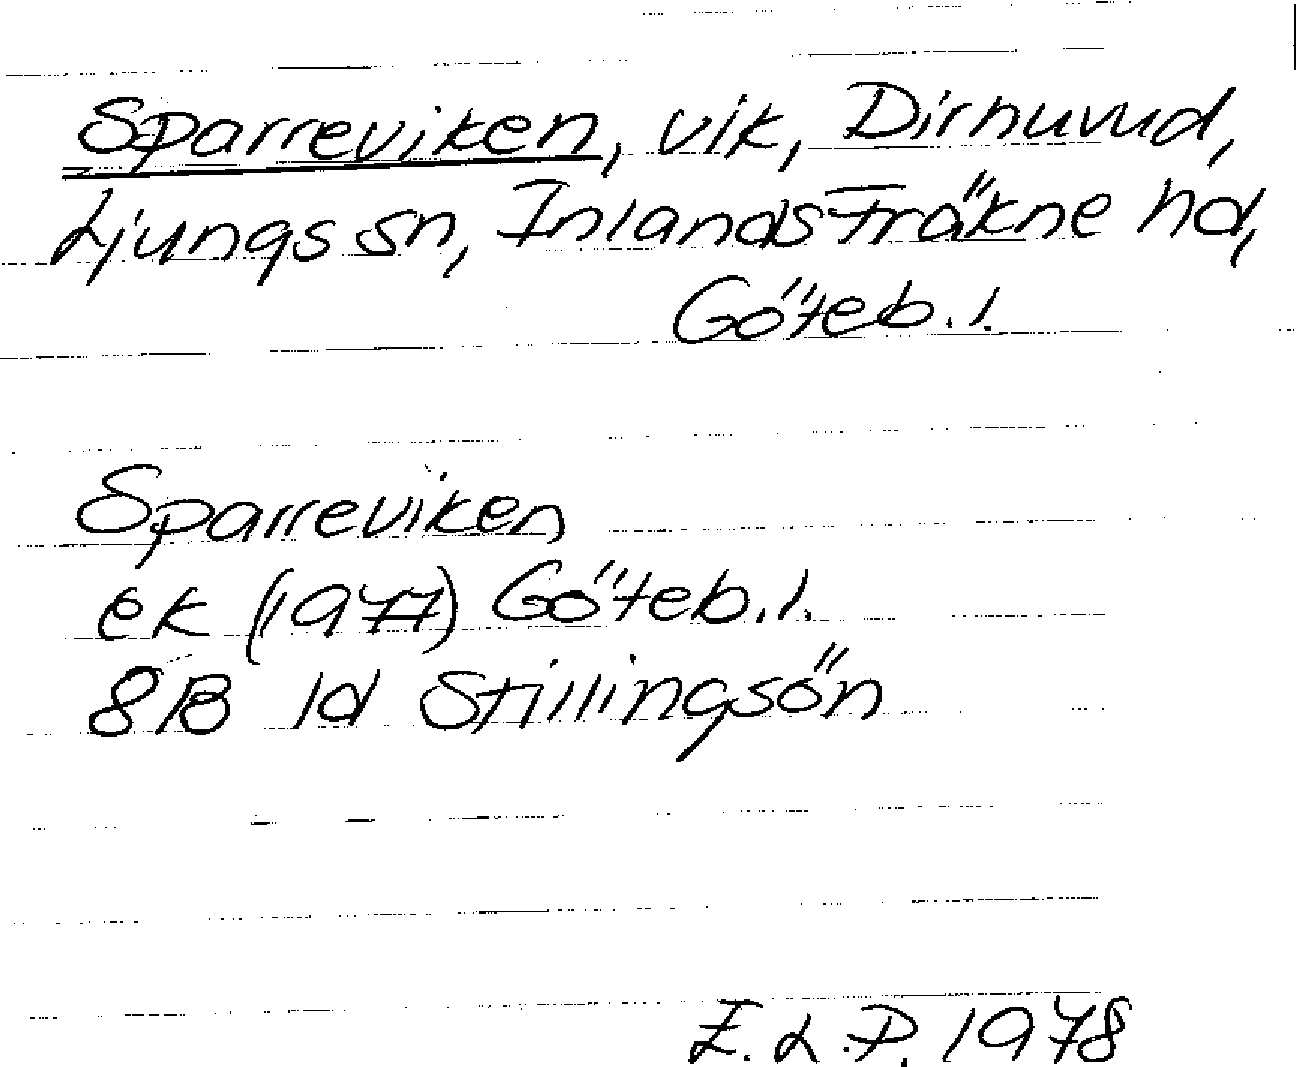 Sparreviken, vik, Dirhuvud,
Ljungs sn, Inlands Fräkne hd,
Göteb. l.
Sparreviken
ek (1977) Göteb. l.
8B 1d Stillingsön
E. L. P. 1978